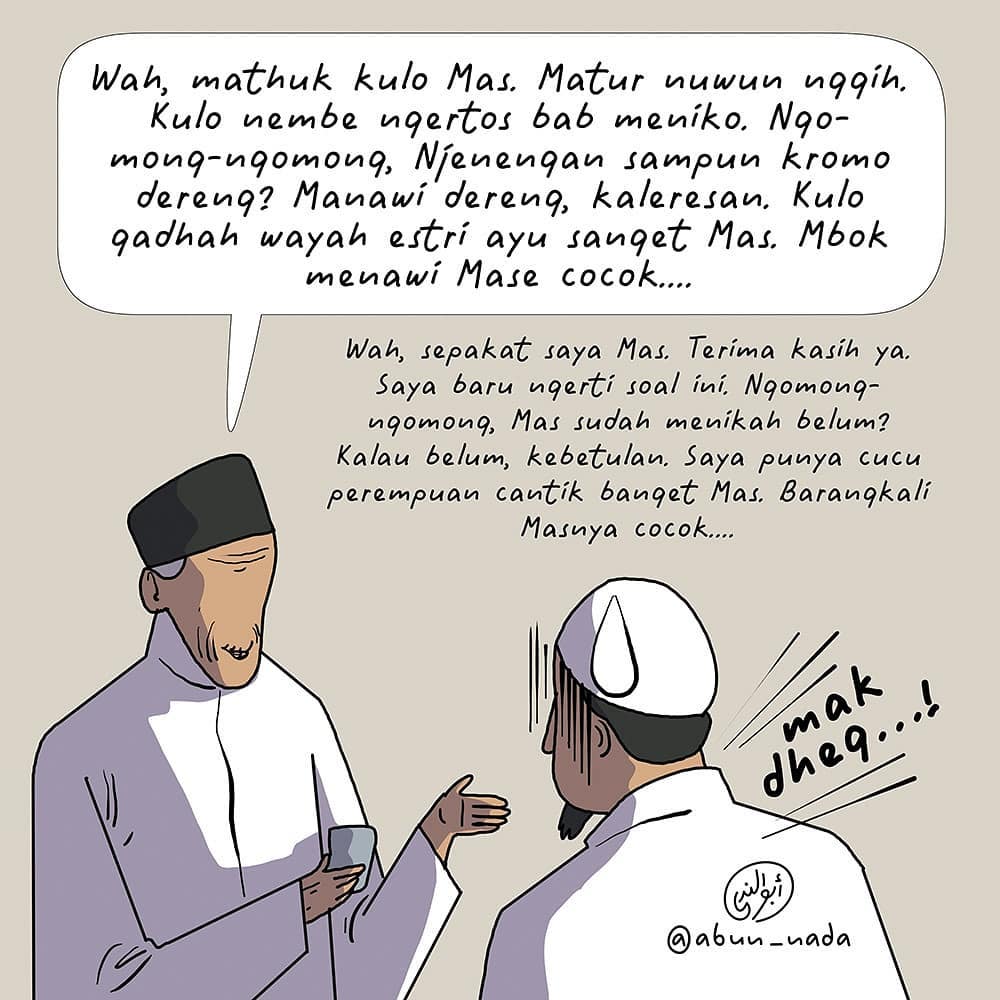 Wah, mathuk kulo Mas. Matur nuwun nggih.
Kulo nembe ngertos bab meniko. Ngo-
mong-ngomong, Njenengan sampun kromo
dereng? Manawi dereng, kaleresan. Kulo
gadhah wayah estri ayu sanget Mas. Mbok
menawi Mase cocok....
Wah, sepakat saya Mas. Terima kasih ya.
Saya baru ngerti soal ini. Ngomong-
ngomong, Mas sudah menikah belum?
Kalau belum, kebetulan. Saya punya cucu
perempuan cantik banget Mas. Barangkali
Masnya cocok....
mak
dheg...!
@abun_nada